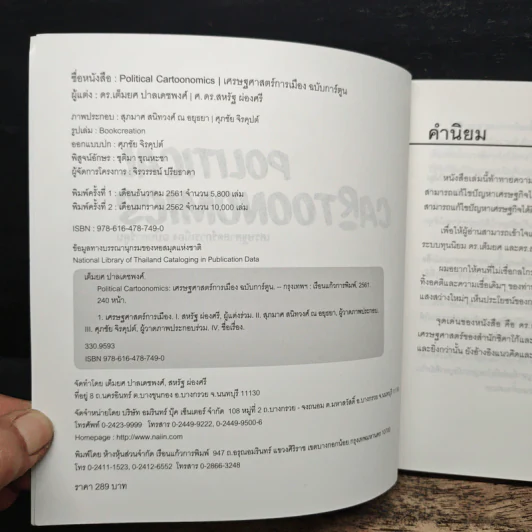 ชื่อหนังสือ : Political Cartoonomics | เศรษฐศาสตร์การเมือง ฉบับการ์ตูน
ผู้แต่ง : ดร.เดิมยศ ปาลเดชพงศ์ | ศ. ดร.สหรัฐ ผ่องศรี
ภาพประกอบ : สุภมาศ สนิทวงศ์ ณ อยุธยา | ศุภชัย จิรคุปต์
รูปเล่ม : Bookcreation
ออกแบบปก : ศุภชัย จิรคุปต์
พิสูจน์อักษร : ชุติมา ชุณหะชา
ผู้จัดการโครงการ : จิรวรรธน์ ปรียธาดา
พิมพ์ครั้งที่ 1 : เดือนธันวาคม 2561 จำนวน 5,800 เล่ม
พิมพ์ครั้งที่ 2 : เดือนมกราคม 2562 จำนวน 10,000 เล่ม
ISBN : 978-616-478-749-0
ข้อมูลทางบรรณานุกรมของหอสมุดแห่งชาติ
National Library of Thailand Cataloging in Publication Data
เดิมยศ ปาลเดชพงศ์.
Political Cartoonomics: เศรษฐศาสตร์การเมือง ฉบับการ์ตูน. -- กรุงเทพฯ : เรือนแก้วการพิมพ์, 2561.
240 หน้า.
1. เศรษฐศาสตร์การเมือง. I. สหรัฐ ผ่องศรี, ผู้แต่งร่วม. II. สุภมาศ สนิทวงศ์ ณ อยุธยา, ผู้วาดภาพประกอบ
III. ศุภชัย จิรคุปต์, ผู้วาดภาพประกอบร่วม. IV. ชื่อเรื่อง.
330.9593
ISBN 978-616-478-749-0
จัดทำโดย เดิมยศ ปาลเดชพงศ์, สหรัฐ ผ่องศรี
ที่อยู่ 8 ถ.นครอินทร์ ต.บางขุนกอง อ.บางกรวย จ.นนทบุรี 11130
จัดจำหน่ายโดย บริษัท อมรินทร์ บุ๊ค เซ็นเตอร์ จำกัด 108 หมู่ที่ 2 ถ.บางกรวย - จงถนอม ต.มหาสวัสดิ์ อ.บางกรวย
โทรศัพท์ 0-2423-9999 โทรสาร 0-2449-9222, 0-2449-9500-6
Homepage : http://www.naiin.com
พิมพ์โดย ห้างหุ้นส่วนจำกัด เรือนแก้วการพิมพ์ 947 ถ.อรุณอมรินทร์ แขวงศิริราช เขตบางกอกน้อย
โทร 0-2411-1523, 0-2412-6552 โทรสาร 0-2866-3248
ราคา 289 บาท
คำนิยม
หนังสือเล่มนี้ท้าทายความ
สามารถแก้ไขปัญหาเศรษฐกิจ
สามารถแก้ไขปัญหาเศรษฐกิจได้
เพื่อให้ผู้อ่านสามารถเข้าใจ
ระบบทุนนิยม ดร.เดิมยศ และดร.
ผมอยากให้คนที่ไม่เชื่อกลไก
ทิ้งอคติและความเชื่อเดิมๆ ของท่าน
แสงสว่างใหม่ๆ เห็นประโยชน์ของ
จุดเด่นของหนังสือ คือ ดร.
เศรษฐศาสตร์ของสำนักชิคาโก้และ
และยิ่งกว่านั้น ยังอ้างอิงแนวคิด